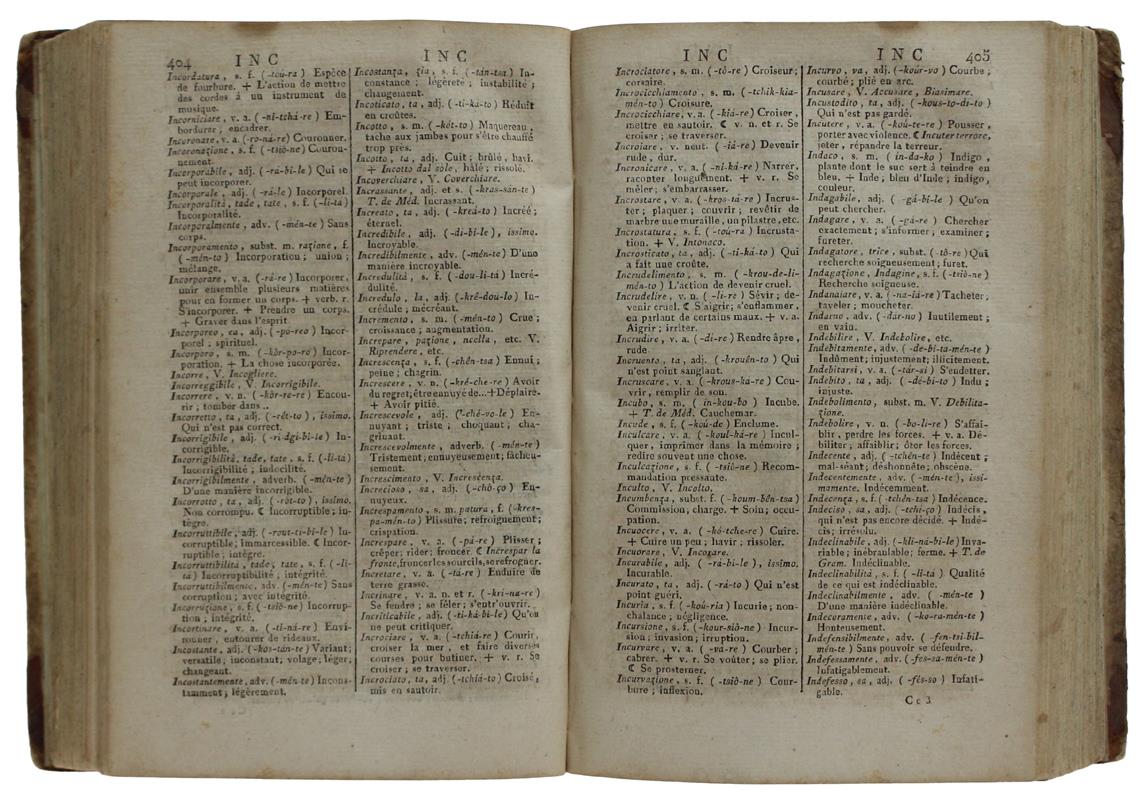 404 INC INC
Incordatura, s. f. (-toú-ra) Espèce
de fourbure. + L'action de mettre
des cordes à un instrument de
musique.
Incorniciare, v. a. (-ni-tchá-re) Em-
bordurer, encadrer.
Incoronare, v. a. (-ro-ná-re) Couronner.
Incoronaʒione, s. f. (-tsiô-ne) Couron-
nement.
Incorporabile, adj. (-ra-bi-le) Qui se
peut incorporer.
Incorporale, adj. (-rá-le) Incorporel.
Incorporalità, tade, tate, s. f. (-li-tà)
Incorporalité.
Incorporalmente, adv. (-mén-te) Sans
corps.
Incorporamento, subst. m. raʒione, f.
(-mén-to) Incorporation; union;
mélange.
Incorporare, v. a. (-rá-re) Incorporer,
unir ensemble plusieurs matières
pour en former un corps. + verb. r.
S'incorporer. + Prendre un corps.
+ Graver dans l'esprit.
Incorporeo, ea, adj. (-pó-reo) Incor-
porel; spirituel.
Incorporo, s. m. (-kór-po-ro) Incor-
poration. + La chose incorporée.
Incorre, V. Incogliere.
Incorreggibile, V. Incorrigibile.
Incorrere, v. n. (-kór-re-re) Encou-
rir; tomber dans..
Incorretto, ta, adj. (-rét-to), issimo.
Qui n'est pas correct.
Incorrigibile, adj. (-ri-dgi-bi-le) In-
corrigible.
Incorrigibilità, tade, tate, s. f. (-li-tà)
Incorrigibilité; indocilité.
Incorrigibilmente, adverb. (-mén-te)
D'une manière incorrigible.
Incorrotto, ta, adj. (-rót-to), issimo.
Non corrompu. ☾ Incorruptible; in-
tègre.
Incorruttibile, adj. (-rout-ti-bi-le) In-
corruptible; immarcessible. ☾ Incor-
ruptible; intègre.
Incorruttibilità, tade, tate, s. f. (-li-
tà) Incorruptibilité; intégrité.
Incorruttibilmente, adv. (-mén-te) Sans
corruption; avec intégrité.
Incorruʒione, s. f. (-tsiô-ne) Incorrup-
tion; intégrité.
Incortinare, v. a. (-ti-ná-re) Envi-
ronner, entourer de rideaux.
Incostante, adj. (-kos-tán-te) Variant;
versatile; inconstant; volage; léger,
changeant.
Incostantemente, adv. (-mén-te) Incons-
tamment; légèrement.
Incostanʒa, ʒia, s. f. (-tán-tsa) In-
constance; légèreté; instabilité;
changement.
Incoticato, ta, adj. (-ti-ka-to) Réduit
en croûtes.
Incotto, s. m. (-kót-to) Maquereau,
tache aux jambes pour s'être chauffé
trop près.
Incotto, ta, adj. Cuit; brûlé, havi.
+ Incotto dal sole, hâlé; rissolé.
Incoverchiare, V. Coverchiare.
Incrassante, adj. et s. (-kras-sán-te)
T. de Méd. Incrassant.
Increato, ta, adj. (-kreá-to) Incréé;
éternel.
Incredibile, adj. (-di-bi-le), issimo.
Incroyable.
Incredibilmente, adv. (-mén-te) D'une
manière incroyable.
Incredulità, s. f. (-dou-li-tà) Incré-
dulité.
Incredulo, la, adj. (-kré-dou-lo) In-
crédule; mécréant.
Incremento, s. m. (-mén-to) Crue;
croissance; augmentation.
Increpare, paʒione, ncella, etc. V.
Riprendere, etc.
Increscenʒa, s. f. (-chén-tsa) Ennui;
peine; chagrin.
Increscere, v. n. (-kré-che-re) Avoir
du regret, être ennuyé de...+ Déplaire.
+ Avoir pitié.
Increscevole, adj. (-ché-vo-le) En-
nuyant; triste; choquant; cha-
grinant.
Increscevolmente, adverb. (-mén-te)
Tristement; ennuyeusement; fâcheu-
sement.
Increscimento, V. Increscenʒa.
Increscioso, sa, adj. (-chô-ço) En-
nuyeux.
Increspamento, s. m. patura, f. (-kres-
pa-mén-to) Plissure; refroignement;
crispation.
Increspare, v. a. (-pá-re) Plisser;
crêper; rider; froncer. ☾ Increspar la
fronte, froncer les sourcils, se refrogner.
Incretare, v. a. (-tá-re) Enduire de
terre grasse.
Incrinare, v. a. n. et r. (-kri-na-re)
Se fendre; se fêler; s'entr'ouvrir.
Incriticabile, adj. (-ti-ká-bi-le) Qu'on
ne peut critiquer.
Incrociare, v. a. (-tchiá-re) Courir,
croiser la mer, et faire diverses
courses pour butiner. + v. r. Se
croiser; se traverser.
Incrociato, ta, adj. (-tchiá-to) Croisé,
mis en sautoir.
INC INC 405
Incrociatore, s. m. (-tô-re) Croiseur;
corsaire.
Incrocicchiamento, s. m. (-tchik-kia-
mén-to) Croisure.
Incrocicchiare, v. a. (-kia-re) Croiser,
mettre en sautoir. ☾ v. n. et r. Se
croiser; se traverser.
Incroiare, v. neut. (-iá-re) Devenir
rude, dur.
Incronicare, v. a. (-ni-ká-re) Narrer,
raconter longuement. + v. r. Se
mêler; s'embarrasser.
Incrostare, v. a. (-kros-tá-re) Incrus-
ter; plaquer; couvrir; revêtir de
marbre une muraille, un pilastre, etc.
Incrostatura, s. f. (-toú-ra) Incrusta-
tion. + V. Intonaco.
Incrosticato, ta, adj. (-ti-ká-to) Qui
a fait une croûte.
Incrudelimento, s. m. (-krou-de-li-
mén-to) L'action de devenir cruel.
Incrudelire, v. n. (-li-re) Sévir; de-
venir cruel. ☾ S'aigrir; s'enflammer,
en parlant de certains maux. + v. a.
Aigrir; irriter.
Incrudire, v. a. (-di-re) Rendre âpre,
rude.
Incruento, ta, adj. (-krouén-to) Qui
n'est point sanglant.
Incruscare, v. a. (-krous-ka-re) Cou-
vrir, remplir de son.
Incubo, s. m. (in-kou-bo) Incube.
+ T. de Méd. Cauchemar.
Incude, s. f. (-koú-de) Enclume.
Inculcare, v. a. (-koul-ká-re) Incul-
quer, imprimer dans la mémoire;
redire souvent une chose.
Inculcaʒione, s. f. (-tsiô-ne) Recom-
mandation pressante.
Inculto, V. Incolto.
Incumbenʒa, subst. f. (-koum-bén-tsa)
Commission; charge. + Soin; occu-
pation.
Incuocere, v. a. (-kó-tche-re) Cuire.
+ Cuire un peu; havir; rissoler.
Incuorare, V. Incorare.
Incurabile, adj. (-rá-bi-le), issimo.
Incurable.
Incurato, ta, adj. (-rá-to) Qui n'est
point guéri.
Incuria, s. f. (-koú-ria) Incurie; non-
chalance; négligence.
Incursione, s. f. (-kour-siô-ne) Incur-
sion; invasion; irruption.
Incurvare, v. a. (-va-re) Courber;
cabrer. + v. r. Se voûter; se plier.
☾ Se prosterner.
Incurvaʒione, s. f. (-tsiô-ne) Cour-
bure; inflexion.
Incurvo, va, adj. (-koúr-vo) Courbe;
courbé; plié en arc.
Incusare, V. Accusare, Biasimare.
Incustodito, ta, adj. (-kous-to-di-to)
Qui n'est pas gardé.
Incutere, v. a. (-koú-te-re) Pousser,
porter avec violence. ☾ Incuter terrore,
jeter, répandre la terreur.
Indaco, s. m. (in-da-ko) Indigo,
plante dont le suc sert à teindre en
bleu. + Inde, bleu d'Inde; indigo,
couleur.
Indagabile, adj. (-gá-bi-le) Qu'on
peut chercher.
Indagare, v. a. (-gá-re) Chercher
exactement; s'informer, examiner;
fureter.
Indagatore, trice, subst. (-tô-re) Qui
recherche soigneusement; furet.
Indagaʒione, Indagine, s. f. (-tsiô-ne)
Recherche soigneuse.
Indanaiare, v. a. (-na-iá-re) Tacheter,
taveler; moucheter.
Indarno, adv. (-dár-no) Inutilement;
en vain.
Indebilire, V. Indebolire, etc.
Indebitamente, adv. (-de-bi-ta-mén-te)
Indûment; injustement; illicitement.
Indebitarsi, v. a. (-tár-si) S'endetter.
Indebito, ta, adj. (-dé-bi-to) Indu;
injuste.
Indebolimento, subst. m. V. Debilita-
ʒione.
Indebolire, v. n. (-bo-li-re) S'affai-
blir, perdre les forces. + v. a. Dé-
biliter; affaiblir; ôter les forces.
Indecente, adj. (-tchén-te) Indécent;
mal-séant; déshonnête; obscène.
Indecentemente, adv. (-mén-te), issi-
mamente. Indécemment.
Indecenʒa, s. f. (-tchén-tsa) Indécence.
Indeciso, sa, adj. (-tchi-ço) Indécis,
qui n'est pas encore décidé. + Indé-
cis; irrésolu.
Indeclinabile, adj. (-kli-ná-bi-le) Inva-
riable; inébranlable; ferme. + T. de
Gram. Indéclinable.
Indeclinabilità, s. f. (-li-tà) Qualité
de ce qui est indéclinable.
Indeclinabilmente, adv. (-mén-te)
D'une manière indéclinable.
Indecoramente, adv. (-ko-ra-mén-te)
Honteusement.
Indefensibilmente, adv. (-fen-tsi-bil-
mén-te) Sans pouvoir se défendre.
Indefessamente, adv. (-fes-sa-mén-te)
Infatigablement.
Indefesso, sa, adj. (-fés-so) Infati-
gable.
Cc 3